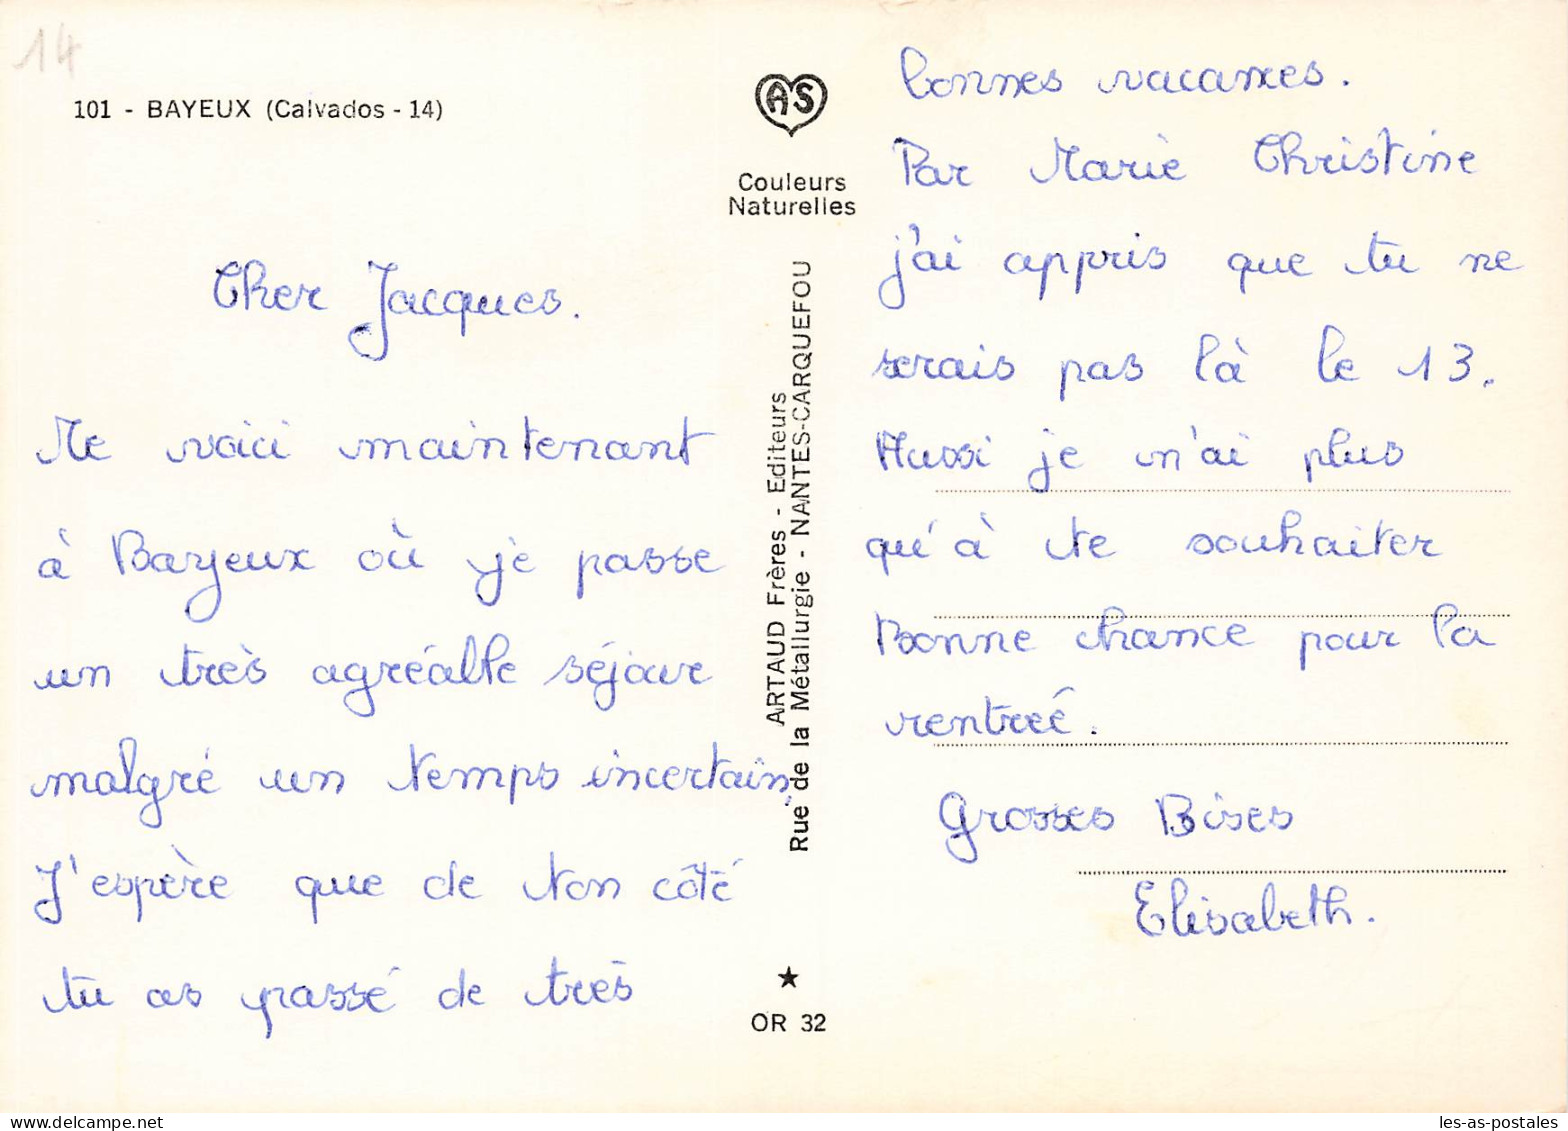 14
101 - BAYEUX (Calvados - 14)
Cher Jacques.
Me voici maintenant
à Bayeux où je passe
un très agréable séjour
malgré un temps incertain,
J'espère que de ton côté
tu as passé de très
AS
Couleurs
Naturelles
ARTAUD Frères - Editeurs
Rue de la Métallurgie - NANTES-CARQUEFOU
★
OR 32
bonnes vacances.
Par Marie Christine
j'ai appris que tu ne
serais pas là le 13.
Aussi je n'ai plus
qu'à te souhaiter
Bonne chance pour la
rentrée.
Grosses Bises
Elisabeth.
Delcampe.net
les-as-postales